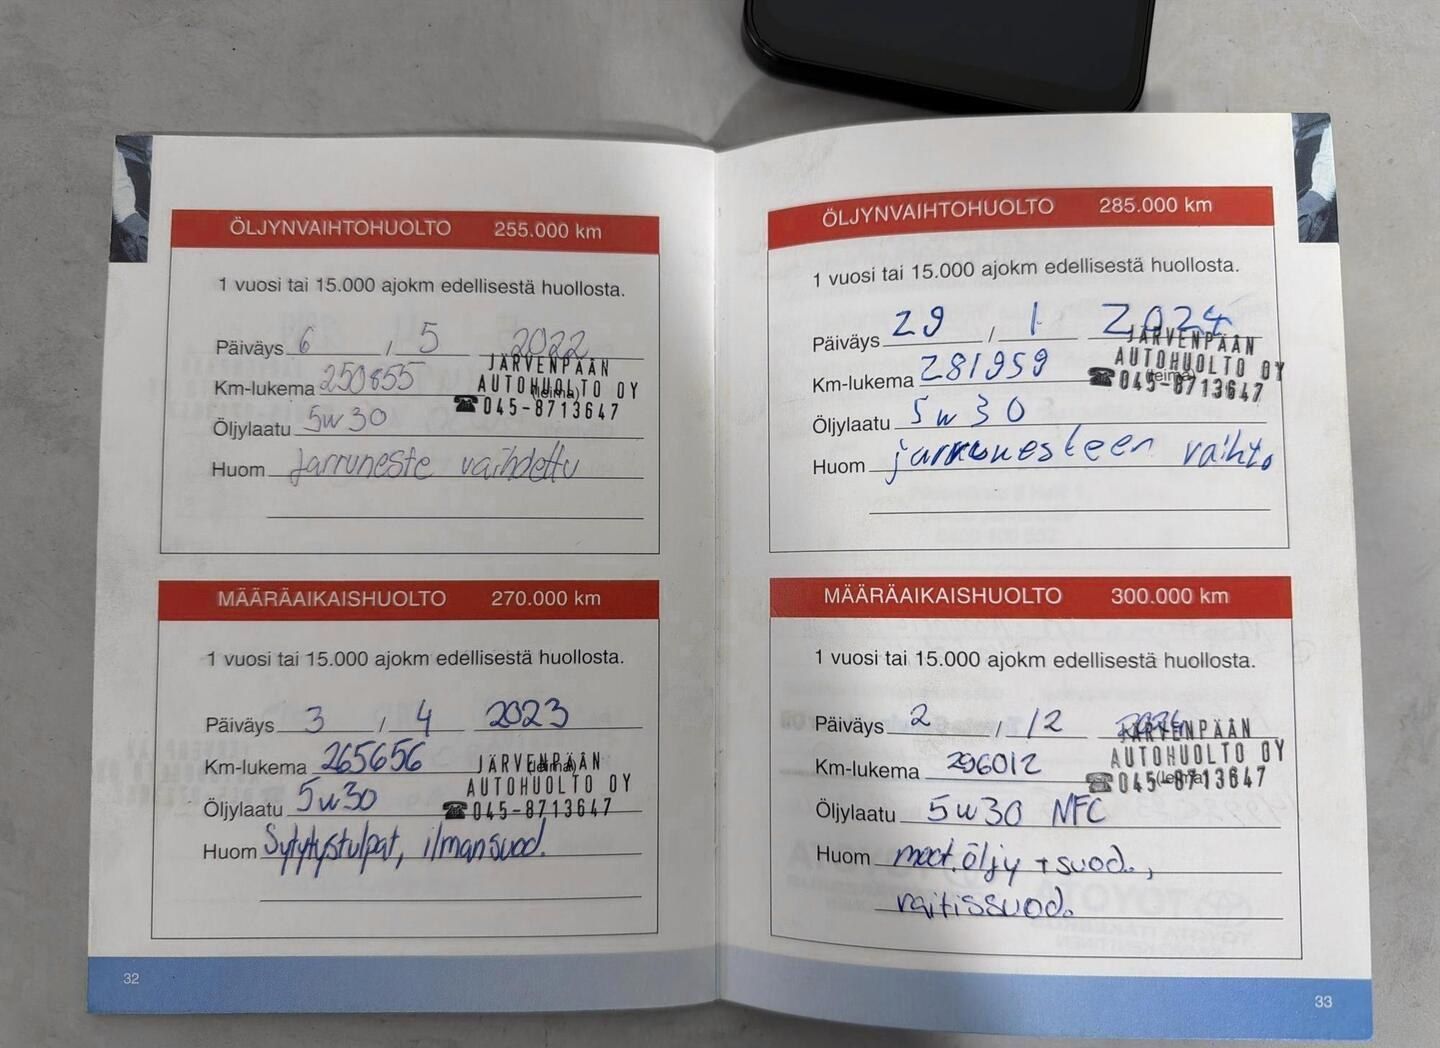 ÖLJYNVAIHTOHUOLTO 255.000 km
1 vuosi tai 15.000 ajokm edellisestä huollosta.
Päiväys 6 / 5 2022
JÄRVENPÄÄN
Km-lukema 250855
AUTOHUOLTO OY
(leima)
☎045-8713647
Öljylaatu 5w30
Huom Jarruneste vaihdettu
MÄÄRÄAIKAISHUOLTO 270.000 km
1 vuosi tai 15.000 ajokm edellisestä huollosta.
Päiväys 3 / 4 2023
Km-lukema 265656
JÄRVENPÄÄN
(leima)
AUTOHUOLTO OY
Öljylaatu 5w30
☎045-8713647
Huom Sytytystulpat, ilmansuod.
32
ÖLJYNVAIHTOHUOLTO 285.000 km
1 vuosi tai 15.000 ajokm edellisestä huollosta.
Päiväys 29 / 1 2024
JÄRVENPÄÄN
AUTOHUOLTO OY
Km-lukema 281959
(leima)
☎045-8713647
Öljylaatu 5w30
Huom jarrunesteen vaihto
MÄÄRÄAIKAISHUOLTO 300.000 km
1 vuosi tai 15.000 ajokm edellisestä huollosta.
Päiväys 2 / 12 2024
JÄRVENPÄÄN
AUTOHUOLTO OY
Km-lukema 296012
(leima)
☎045-8713647
Öljylaatu 5w30 NFC
Huom moot.öljy + suod.,
raitissuod.
33
TOYOTA